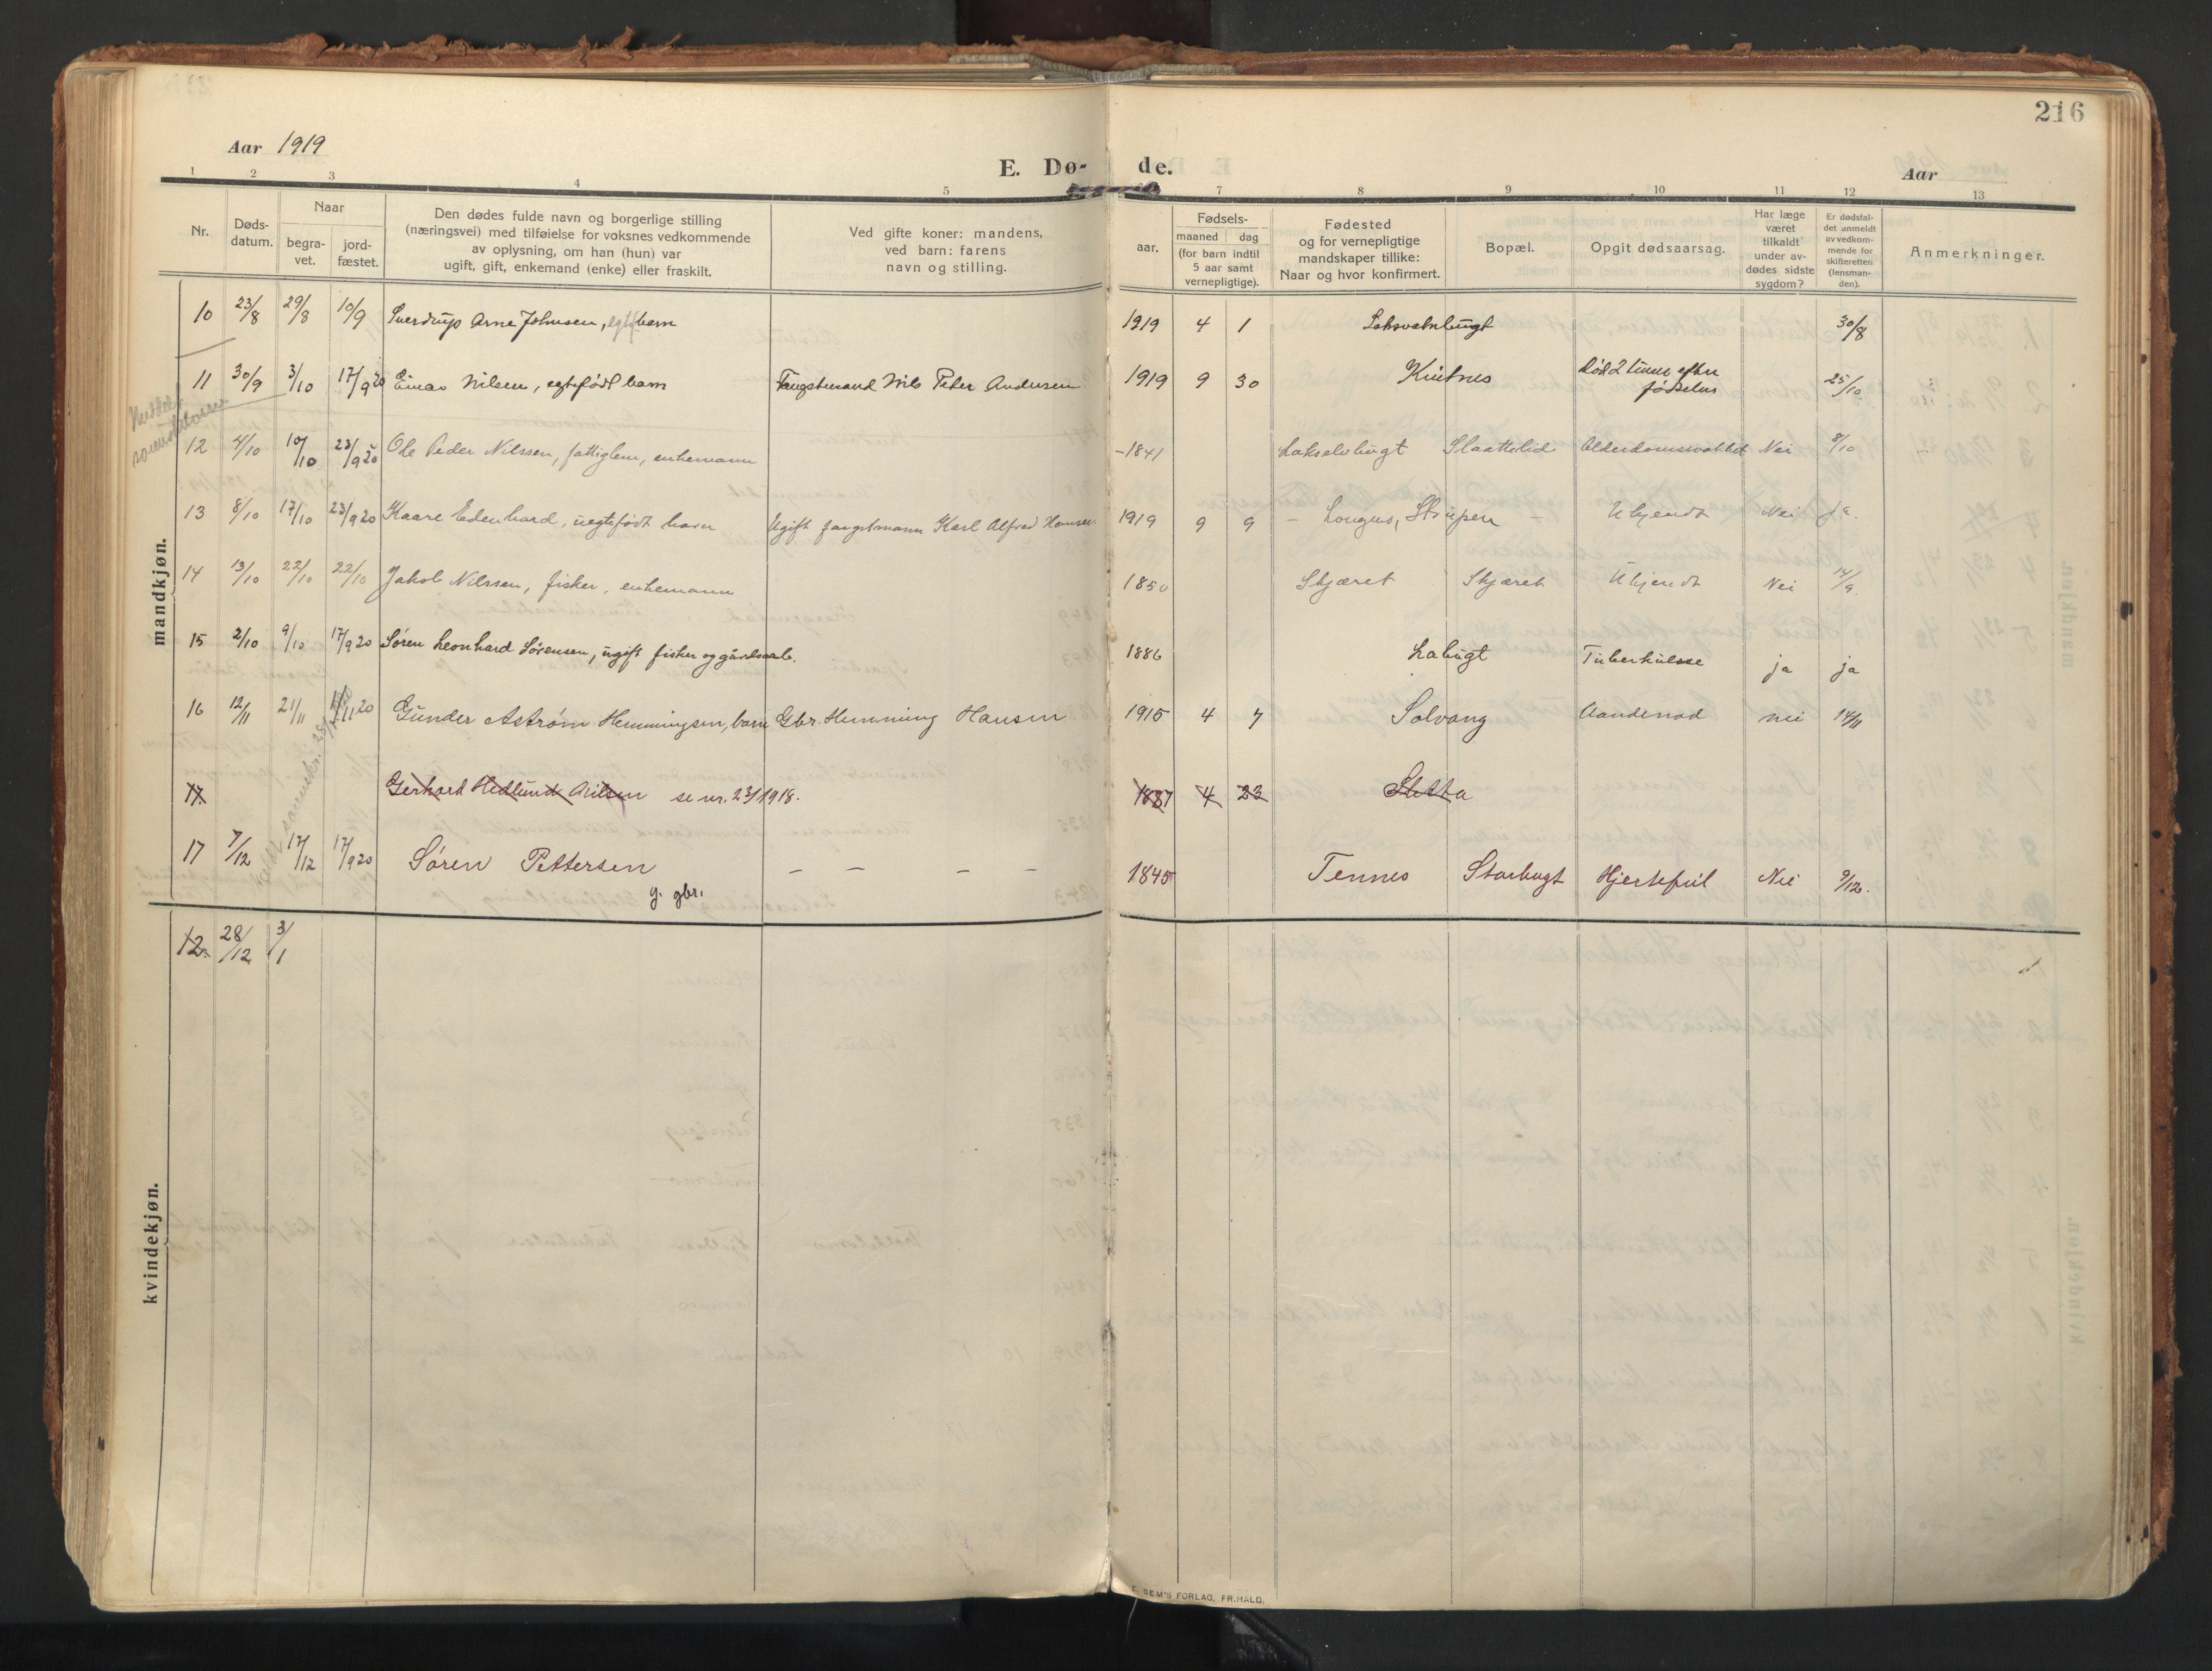 216
Aar 1919
E. Dø- de.
Aar
1 2 3 4 5 7 8 9 10 11 12 13
Nr.
Døds-
datum.
Naar
begra-
vet.
jord-
fæstet.
Den dødes fulde navn og borgerlige stilling
(næringsvei) med tilføielse for voksnes vedkommende
av oplysning, om han (hun) var
ugift, gift, enkemand (enke) eller fraskilt.
Ved gifte koner: mandens,
ved barn: farens
navn og stilling.
aar.
Fødsels-
maaned dag
(for barn indtil
5 aar samt
vernepligtige).
Fødested
og for vernepligtige
mandskaper tillike:
Naar og hvor konfirmert.
Bopæl.
Opgit dødsaarsag.
Har læge
været
tilkaldt
under av-
dødes sidste
sygdom?
Er dødsfal-
det anmeldt
av vedkom-
mende for
skifteretten
(lensman-
den).
Anmerkninger.
mandkjøn.
10 23/8 29/8 10/9 Sverdrup Arne Johnsen, egtf. barn 1919 4 1 30/8
11 30/9 3/10 17/9 20 Einar Nilsen, egtefødt barn Fangstmand Nils Peter Andersen 1919 9 30 Død 2 timer efter
fødselen 25/10
12 4/10 10/10 23/9 20 Ole Peder Nilssen, fattiglem, enkemann -1841 Lakselvbugt Slaattelid Nei 8/10
13 8/10 17/10 23/9 20 Kaare Edenhard, uegtefødt barn Ugift fangstmann Karl Alfred Hansen 1919 9 9 - - Ukjendt Nei ja.
14 13/10 22/10 22/10 Jakob Nilssen, fisker, enkemann 1850 Skjæret Skjæret Ukjendt Nei 14/9.
15 2/10 9/10 17/9 20 Søren Leonhard Sørensen, ugift fisker og 1886 Tuberkulose ja ja
16 12/11 21/11 20 Gunder Astrøm Hemmingsen, barn Gbr. Hemming Hansen 1915 4 7 Solvang Aandenød nei 14/11
17. Gerhard Hedlund Nilsen se nr. 23/1918. 1887 4 23 Sletta
17 7/12 17/12 17/9 20 Søren Pettersen - - - - 1845 Tennes Storbugt Hjertefeil Nei 9/12.
g. gbr.
kvindekjøn.
12. 28/12 3/1
SEM'S FORLAG, FR.HALD.